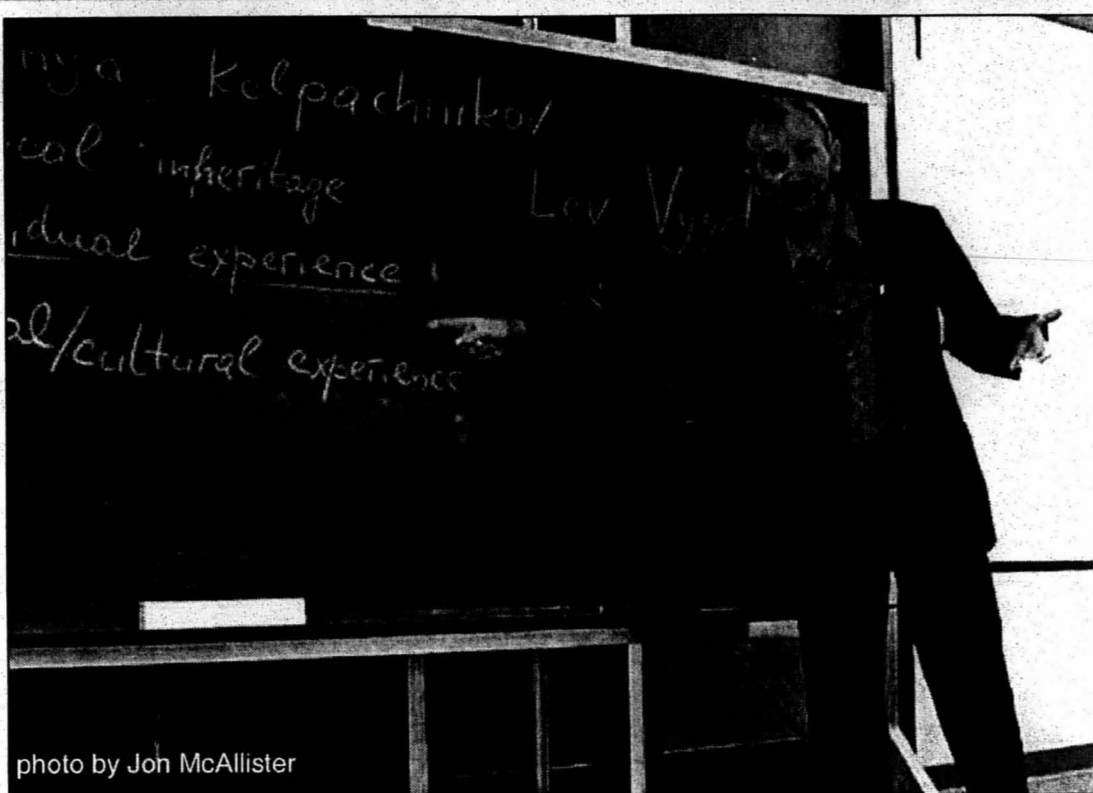 nya Kolpachnikov
cal inheritage
Lev Vyg
idual experience
al/cultural experience
photo by Jon McAllister